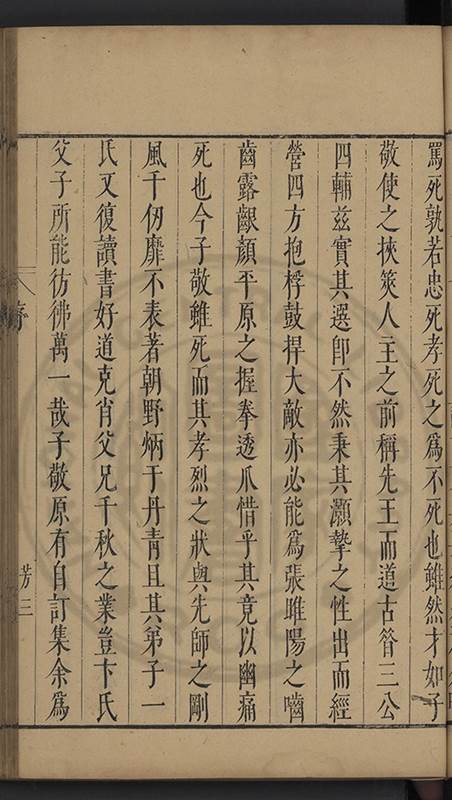 罵死孰若忠死孝死之為不死也雖然才如子
敬使之挾筴人主之前稱先王而道古昔三公
四輔茲實其選卽不然秉其灝摯之性出而經
營四方抱桴鼓捍大敵亦必能為張睢陽之嚙
齒露齦顏平原之握拳透爪惜乎其竟以幽痛
死也今子敬雖死而其孝烈之狀與先師之剛
風千仞靡不表著朝野炳于丹青且其弟子一
氏又復讀書好道克肖父兄千秋之業豈卞氏
父子所能彷彿萬一哉子敬原有自訂集余為
序
芳三